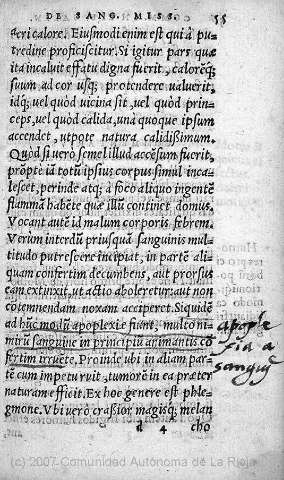 DE SANG. MISS. 55
fieri calore. Eiusmodi enim est qui à pu-
tredine proficiscitur. Si igitur pars quæ
ita incaluit effatu digna fuerit, calorẽq;
suum ad cor usq; protendere ualuerit,
idq; uel quòd uicina sit, uel quòd prin-
ceps, uel quòd calida, unà quoque ipsum
accendet, utpote natura calidissimum.
Quòd si uerò semel illud accẽsum fuerit,
prõpte iã totũ ipsius corpus simul inca-
lescet, perinde atq; à foco aliquo ingentẽ
flammã habẽte quæ illũ continet domus.
Vocant autẽ id malum corporis febrem.
Verùm interdũ priusquã sanguinis mul-
titudo putrescere incipiat, in partẽ ali-
quam confertim decumbens, aut prorsus
eam extinxit, ut actio aboleretur: aut non
cõtemnendam noxam acciperet. Siquidẽ
ad hũc modũ apoplexiæ fiunt, multo ni-
mirũ sanguine in principiũ animantis cõ
fertim irruẽte. Proinde ubi in aliam par-
tẽ cum impetu ruit, tumorẽ in ea præter
naturam efficit. Ex hoc genere est phleg-
mone. Vbi uerò crassior, magisq; melan
d 4 cho
apople
xia a
sanguĩ
(c) 2007 Comunidad Autónoma de La Rioja